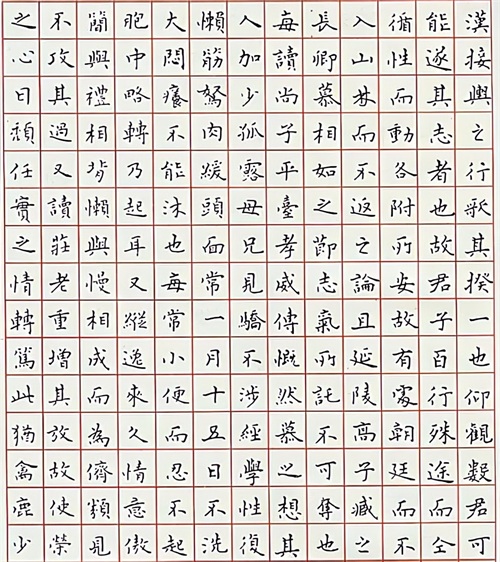 漢接輿之行歌其揆一也仰觀數君可
能遂其志者也故君子百行殊途而仝
循性而動各附所安故有處朝廷而不
入山林而不返之論且延陵高子臧之
長卿慕相如之節志氣所託不可奪也
每讀尚子平臺孝威傳慨然慕之想其
人加少孤露母兄見驕不涉經學性復
懶筋駑肉緩頭面常一月十五日不洗
大悶癢不能沐也每常小便而忍不起
胞中略轉乃起耳又縱逸來久情意傲
簡與禮相背懶與慢相成而為儕類見
不攻其過又讀莊老重增其放故使榮
之心日頹任實之情轉篤此猶禽鹿少